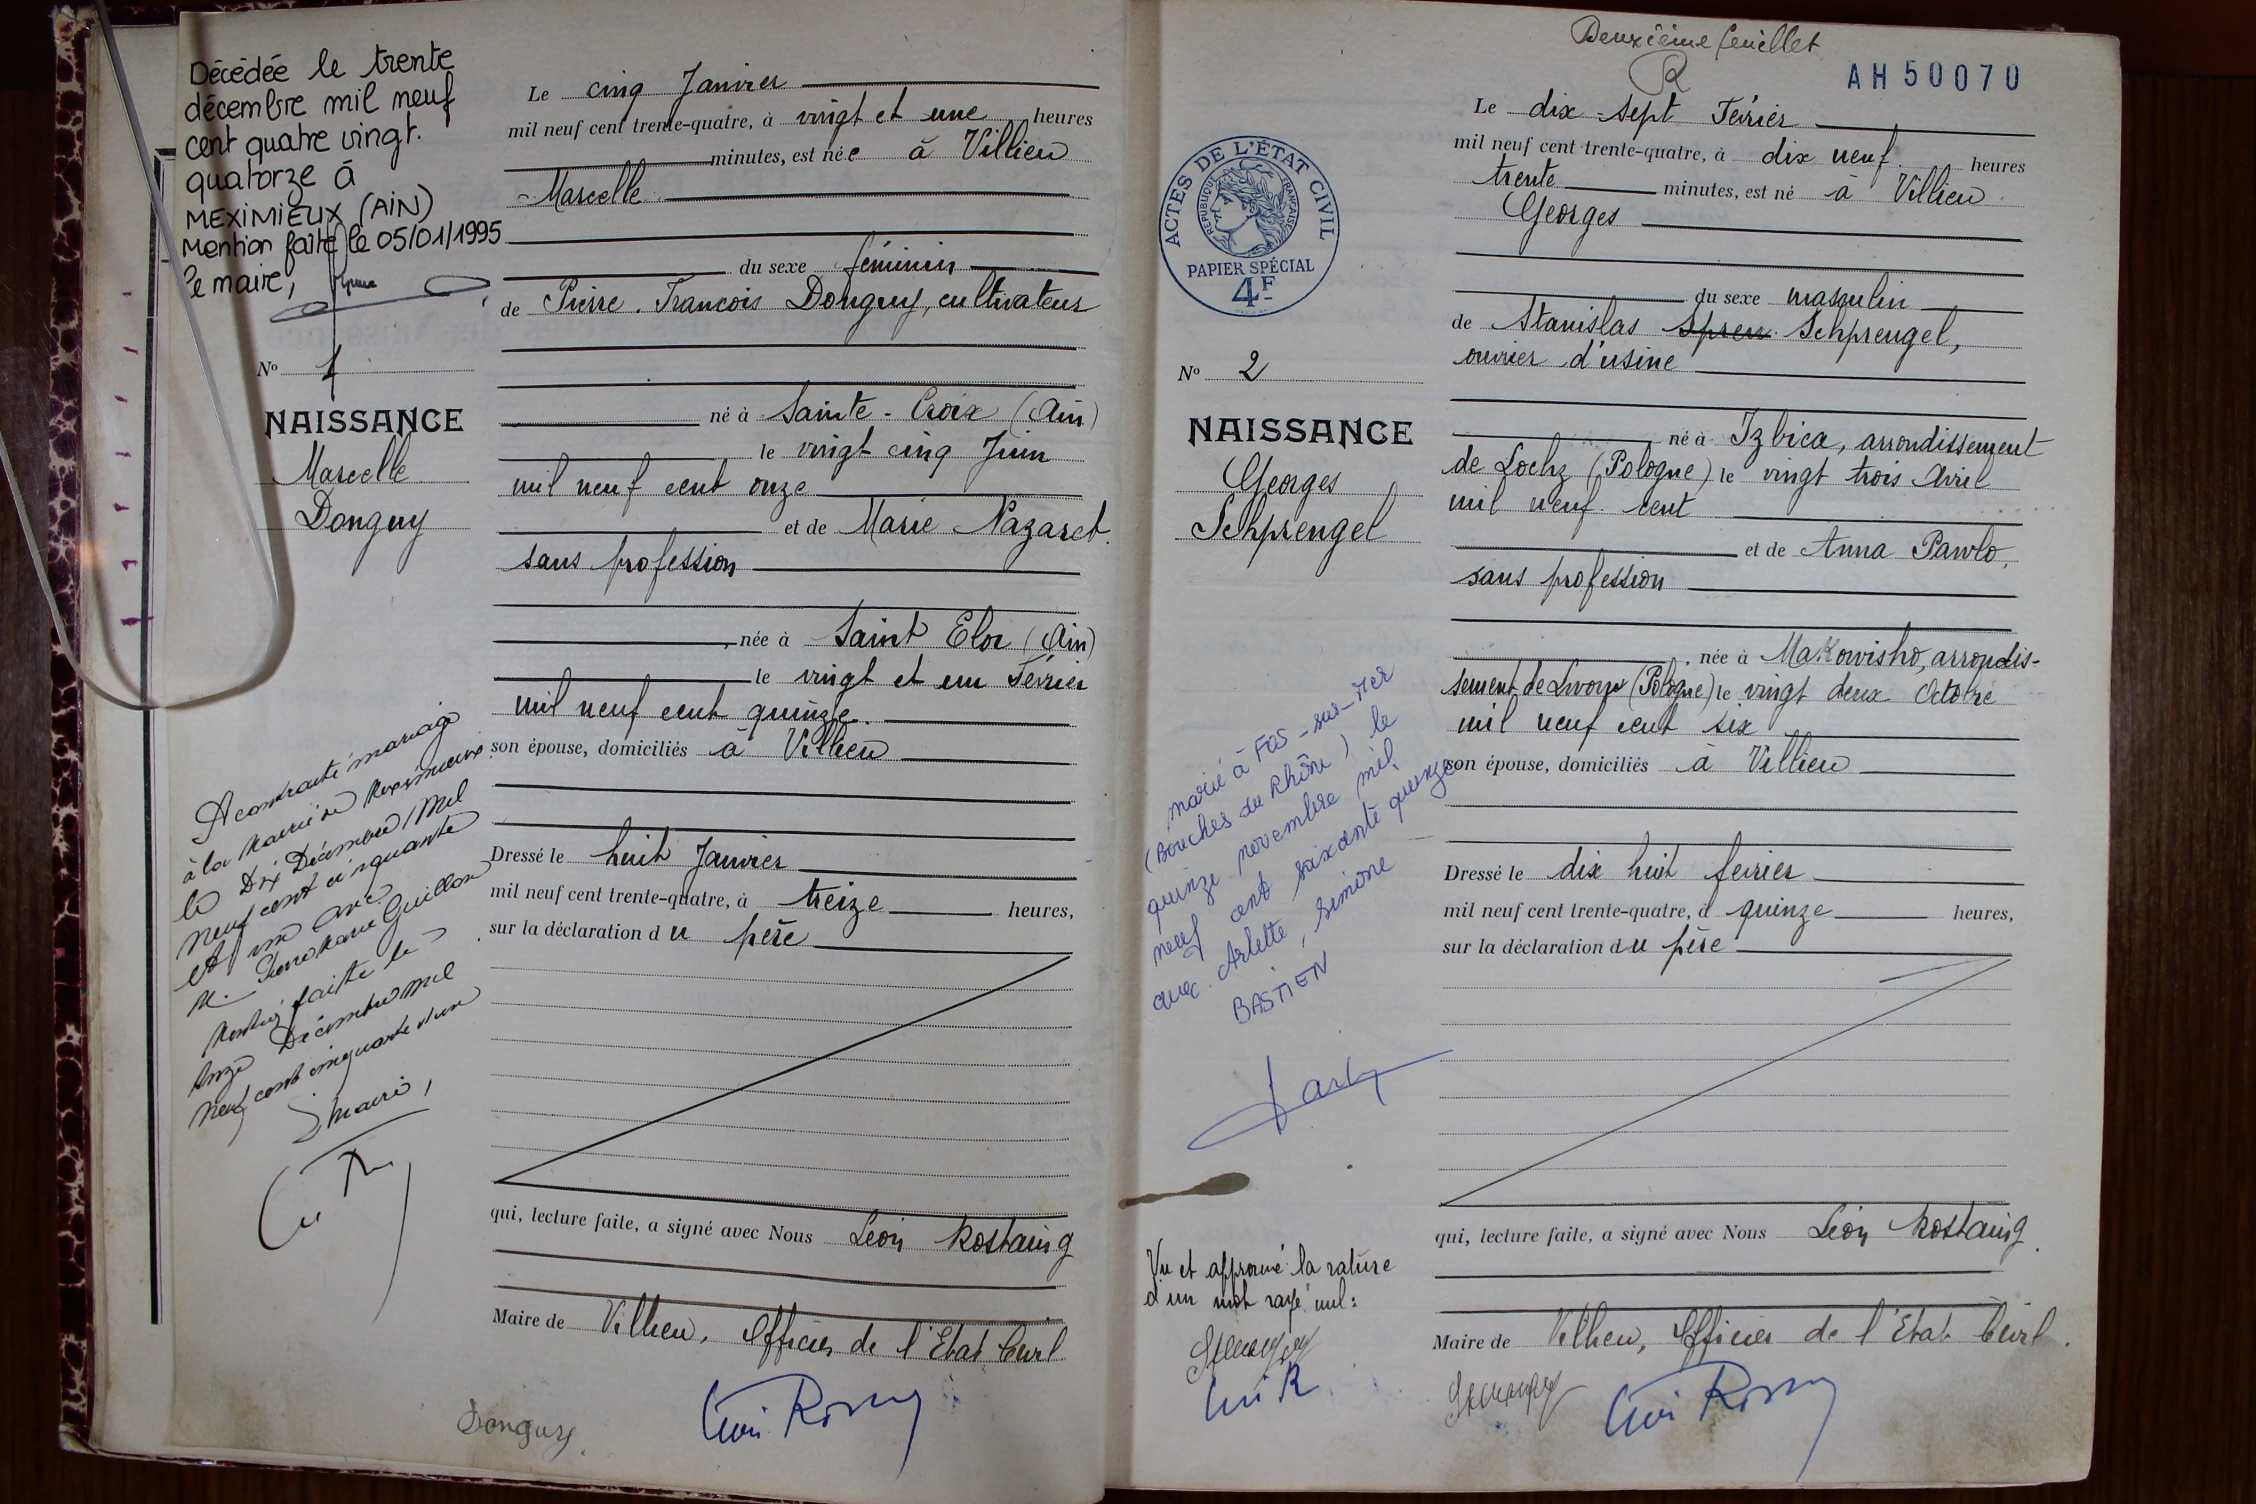 Décédée le trente
décembre mil neuf
cent quatre vingt.
quatorze à
MEXIMIEUX (AIN)
Mention faite le 05/01/1995
le maire,
N° 1
NAISSANCE
Marcelle
Donguy
A contracté mariage
à la Mairie de Meximieux
le Dix Décembre Mil
neuf cent cinquante
et un avec
M. Pierre Marie Guillon
Mention faite le
Onze Décembre Mil
Neuf cent cinquante et un
Le Maire,
Le cinq Janvier
mil neuf cent trente-quatre, à vingt et une heures
minutes, est née à Villieu
Marcelle
du sexe féminin
de Pierre. Francois Donguy, cultivateur
né à Sainte-Croix (Ain)
le vingt cinq Juin
mil neuf cent onze
et de Marie Nazaret
sans profession
née à Saint Eloi (Ain)
le vingt et un Février
mil neuf cent quinze.
son épouse, domiciliés à Villieu
Dressé le huit Janvier
mil neuf cent trente-quatre, à treize heures,
sur la déclaration du père
qui, lecture faite, a signé avec Nous Léon Rostaing
Maire de Villieu, Officier de l'Etat Civil
Donguy
Deuxième feuillet
R
AH 50070
ACTES DE L'ÉTAT CIVIL
RÉPUBLIQUE FRANÇAISE
PAPIER SPÉCIAL
4F
N° 2
NAISSANCE
Georges
Schprengel
marié à FOS-sur-Mer
(Bouches du Rhône) le
quinze novembre mil
neuf cent soixante quinze
avec Arlette, Simone
BASTIEN
Vu et approuvé la rature
d'un mot rayé nul:
Le dix-sept Février
mil neuf cent trente-quatre, à dix neuf heures
trente minutes, est né à Villieu
Georges
du sexe masculin
de Stanislas Spren Schprengel,
ouvrier d'usine
né à Izbica, arrondissement
de Lochz (Pologne) le vingt trois Avril
mil neuf cent
et de Anna Pawlo,
sans profession
née à Makowisho, arrondis-
sement de Lwow (Pologne) le vingt deux Octobre
mil neuf cent six
son épouse, domiciliés à Villieu
Dressé le dix huit février
mil neuf cent trente-quatre, à quinze heures,
sur la déclaration du père
qui, lecture faite, a signé avec Nous Léon Rostaing
Maire de Villieu, Officier de l'Etat Civil.